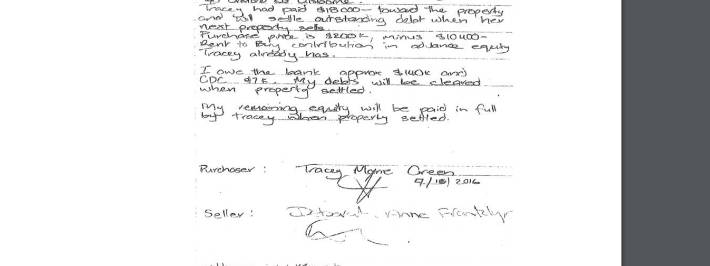 Tracey had paid $18 000 - toward the property
and will settle outstanding debt when her
next property sells.
Purchase price is $200K, minus $10400-
Rent to Buy contribution in advance equity
Tracey already has.
I owe the bank approx $140K and
CDC $7K. My debts will be cleared
when property settled.
My remaining equity will be paid in full
by Tracey when property settled.
Purchaser : Tracey Green
2016
Seller :